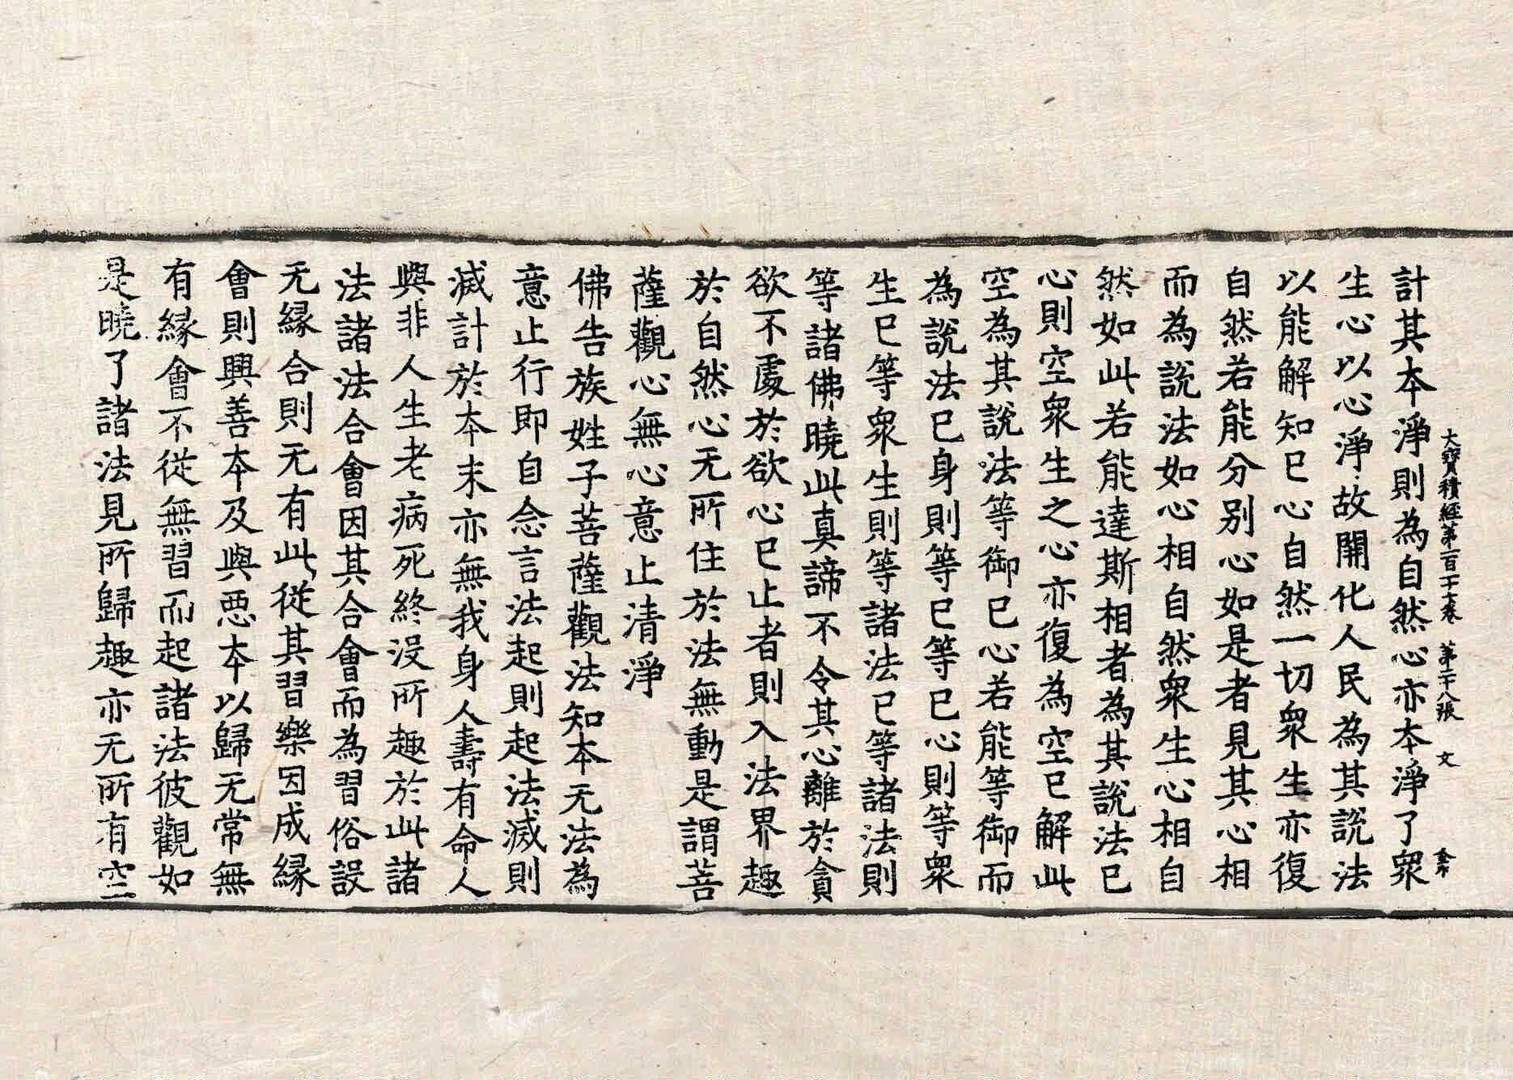 計其夲淨則為自然心亦夲淨了衆
大寶積經第一百十七卷 第十八張 文
生心以心淨故開化人民為其説法
以能解知已心自然一切衆生亦復
自然若能分别心如是者見其心相
而為説法如心相自然衆生心相自
然如此若能達斯相者為其説法已
心則空衆生之心亦復為空已解此
空為其説法等御已心若能等御而
為説法已身則等已等已心則等衆
生已等衆生則等諸法已等諸法則
等諸佛曉此真諦不令其心離於貪
欲不處於欲心已止者則入法界趣
於自然心无所住於法無動是謂菩
薩觀心無心意止清淨
佛告族姓子菩薩觀法知本无法為
意止行即自念言法起則起法滅則
滅計於夲末亦無我身人壽有命人
與非人生老病死終没所趣於此諸
法諸法合會因其合會而為習俗設
无緣合則无有此從其習樂因成緣
會則興善夲及與惡夲以歸无常無
有緣會不從無習而起諸法彼觀如
是曉了諸法見所歸趣亦无所有空